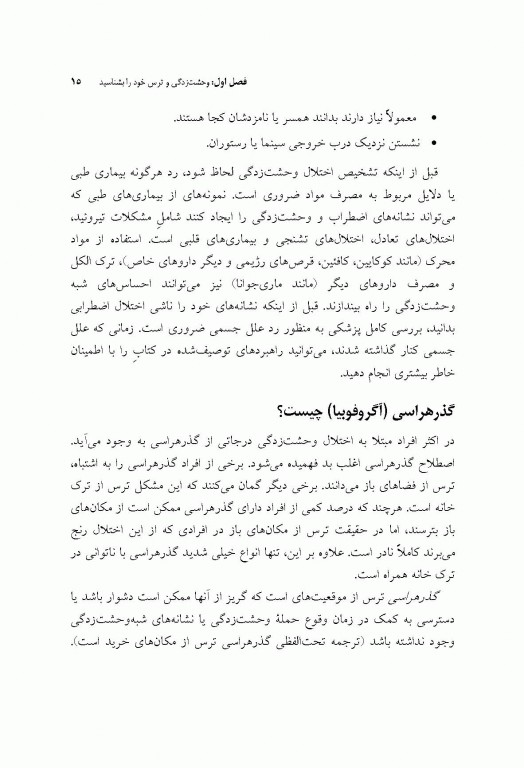 فصل اول: وحشت‌زدگی و ترس خود را بشناسید ۱۵
• معمولاً نیاز دارند بدانند همسر یا نامزدشان کجا هستند.
• نشستن نزدیک درب خروجی سینما یا رستوران.
قبل از اینکه تشخیص اختلال وحشت‌زدگی لحاظ شود، رد هرگونه بیماری طبی
یا دلایل مربوط به مصرف مواد ضروری است. نمونه‌های از بیماری‌های طبی که
می‌تواند نشانه‌های اضطراب و وحشت‌زدگی را ایجاد کنند شاملِ مشکلات تیروئید،
اختلال‌های تعادل، اختلال‌های تشنجی و بیماری‌های قلبی است. استفاده از مواد
محرک (مانند کوکایین، کافئین، قرص‌های رژیمی و دیگر داروهای خاص)، ترک الکل
و مصرف داروهای دیگر (مانند ماری‌جوانا) نیز می‌توانند احساس‌های شبه
وحشت‌زدگی را راه بیندازند. قبل از اینکه نشانه‌های خود را ناشی اختلال اضطرابی
بدانید، بررسی کامل پزشکی به منظور رد علل جسمی ضروری است. زمانی که علل
جسمی کنار گذاشته شدند، می‌توانید راهبردهای توصیف‌شده در کتابِ را با اطمینان
خاطر بیشتری انجام دهید.
گذرهراسی (آگروفوبیا) چیست؟
در اکثر افراد مبتلا به اختلال وحشت‌زدگی درجاتی از گذرهراسی به وجود می‌آید.
اصطلاح گذرهراسی اغلب بد فهمیده می‌شود. برخی از افراد گذرهراسی را به اشتباه،
ترس از فضاهای باز می‌دانند. برخی دیگر گمان می‌کنند که این مشکل ترس از ترک
خانه است. هرچند که درصد کمی از افراد دارای گذرهراسی ممکن است از مکان‌های
باز بترسند، اما در حقیقت ترس از مکان‌های باز در افرادی که از این اختلال رنج
می‌برند کاملاً نادر است. علاوه بر این، تنها انواع خیلی شدید گذرهراسی با ناتوانی در
ترک خانه همراه است.
گذرهراسی ترس از موقعیت‌های است که گریز از آنها ممکن است دشوار باشد یا
دسترسی به کمک در زمان وقوع حملهٔ وحشت‌زدگی یا نشانه‌های شبه‌وحشت‌زدگی
وجود نداشته باشد (ترجمه تحت‌الفظی گذرهراسی ترس از مکان‌های خرید است).